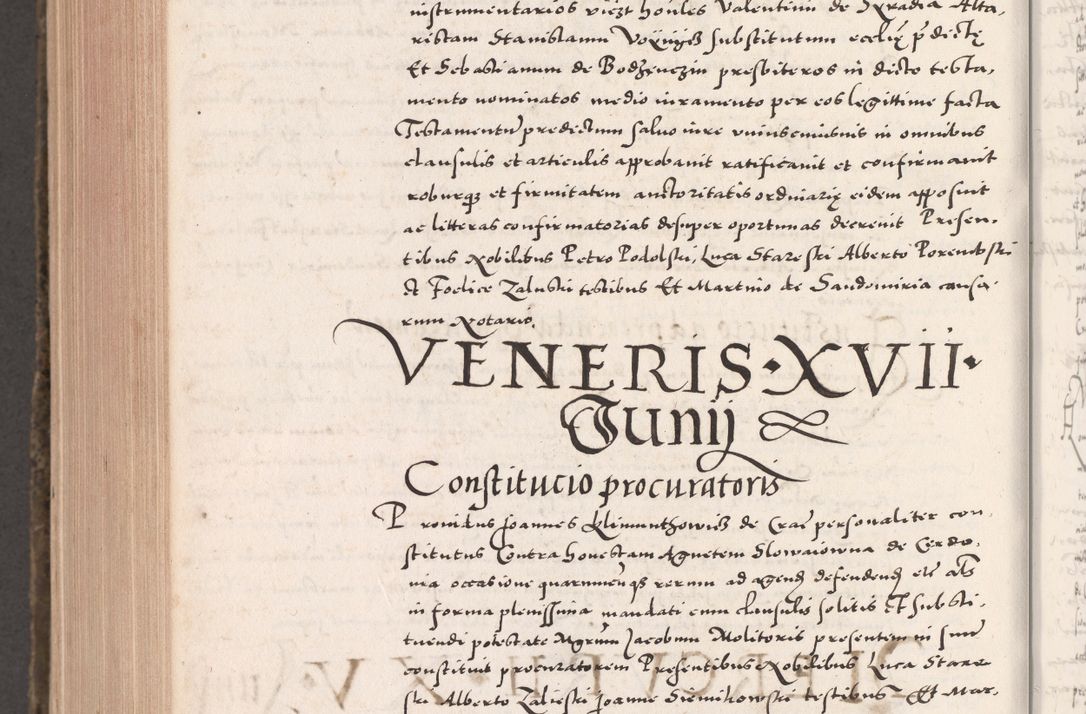 instrumentarios vie&#123;z&#125;t ho&#123;n&#125;les Valentinu de Xradia Alta,
ristam Stanislaum Voÿnÿß substitutum ecclię p̄dictę
Et Sebastianum de Bodzęnczin presbiteros in dicto testa,
mento nominatos medio iuramento per eos legittime facta
Testamentū predictum saluo iure vniuscuiusuis in omnibus
clausulis et articulis approbauit ratificauit et confirmauit
roburqȝ et firmitatem auctoritatis ordinarię eidem apposuit
ac litteras confirmatorias desuper oportunas decreuit Presen,
tibus Nobilibus Petro Podolski, Luca Stareski Alberto Porembski
et Foelice Zaluski testibus Et Martino de Sandomiria causa,
rum Notario.
VENERIS · XVII ·
Iunij
Constitucio procuratoris
Prouidus Joannes Klimunthowicz de Crac personaliter con,
stitutus Contra honestam Agnetem Slowaiowna de Cerdo,
nia occasione quarumcūqȝ rerum ad agend defendend etc als
in forma plenissima mandati cum clausulis solitis Et substi,
tuendi potestate Mgrum Jacobum Molitoris presentem in suum
constituit procuratorem Presentibus Nobilibus Luca Stare,
ski Alberto Zaleski Joanne Siemikowski testibus Et Mar,